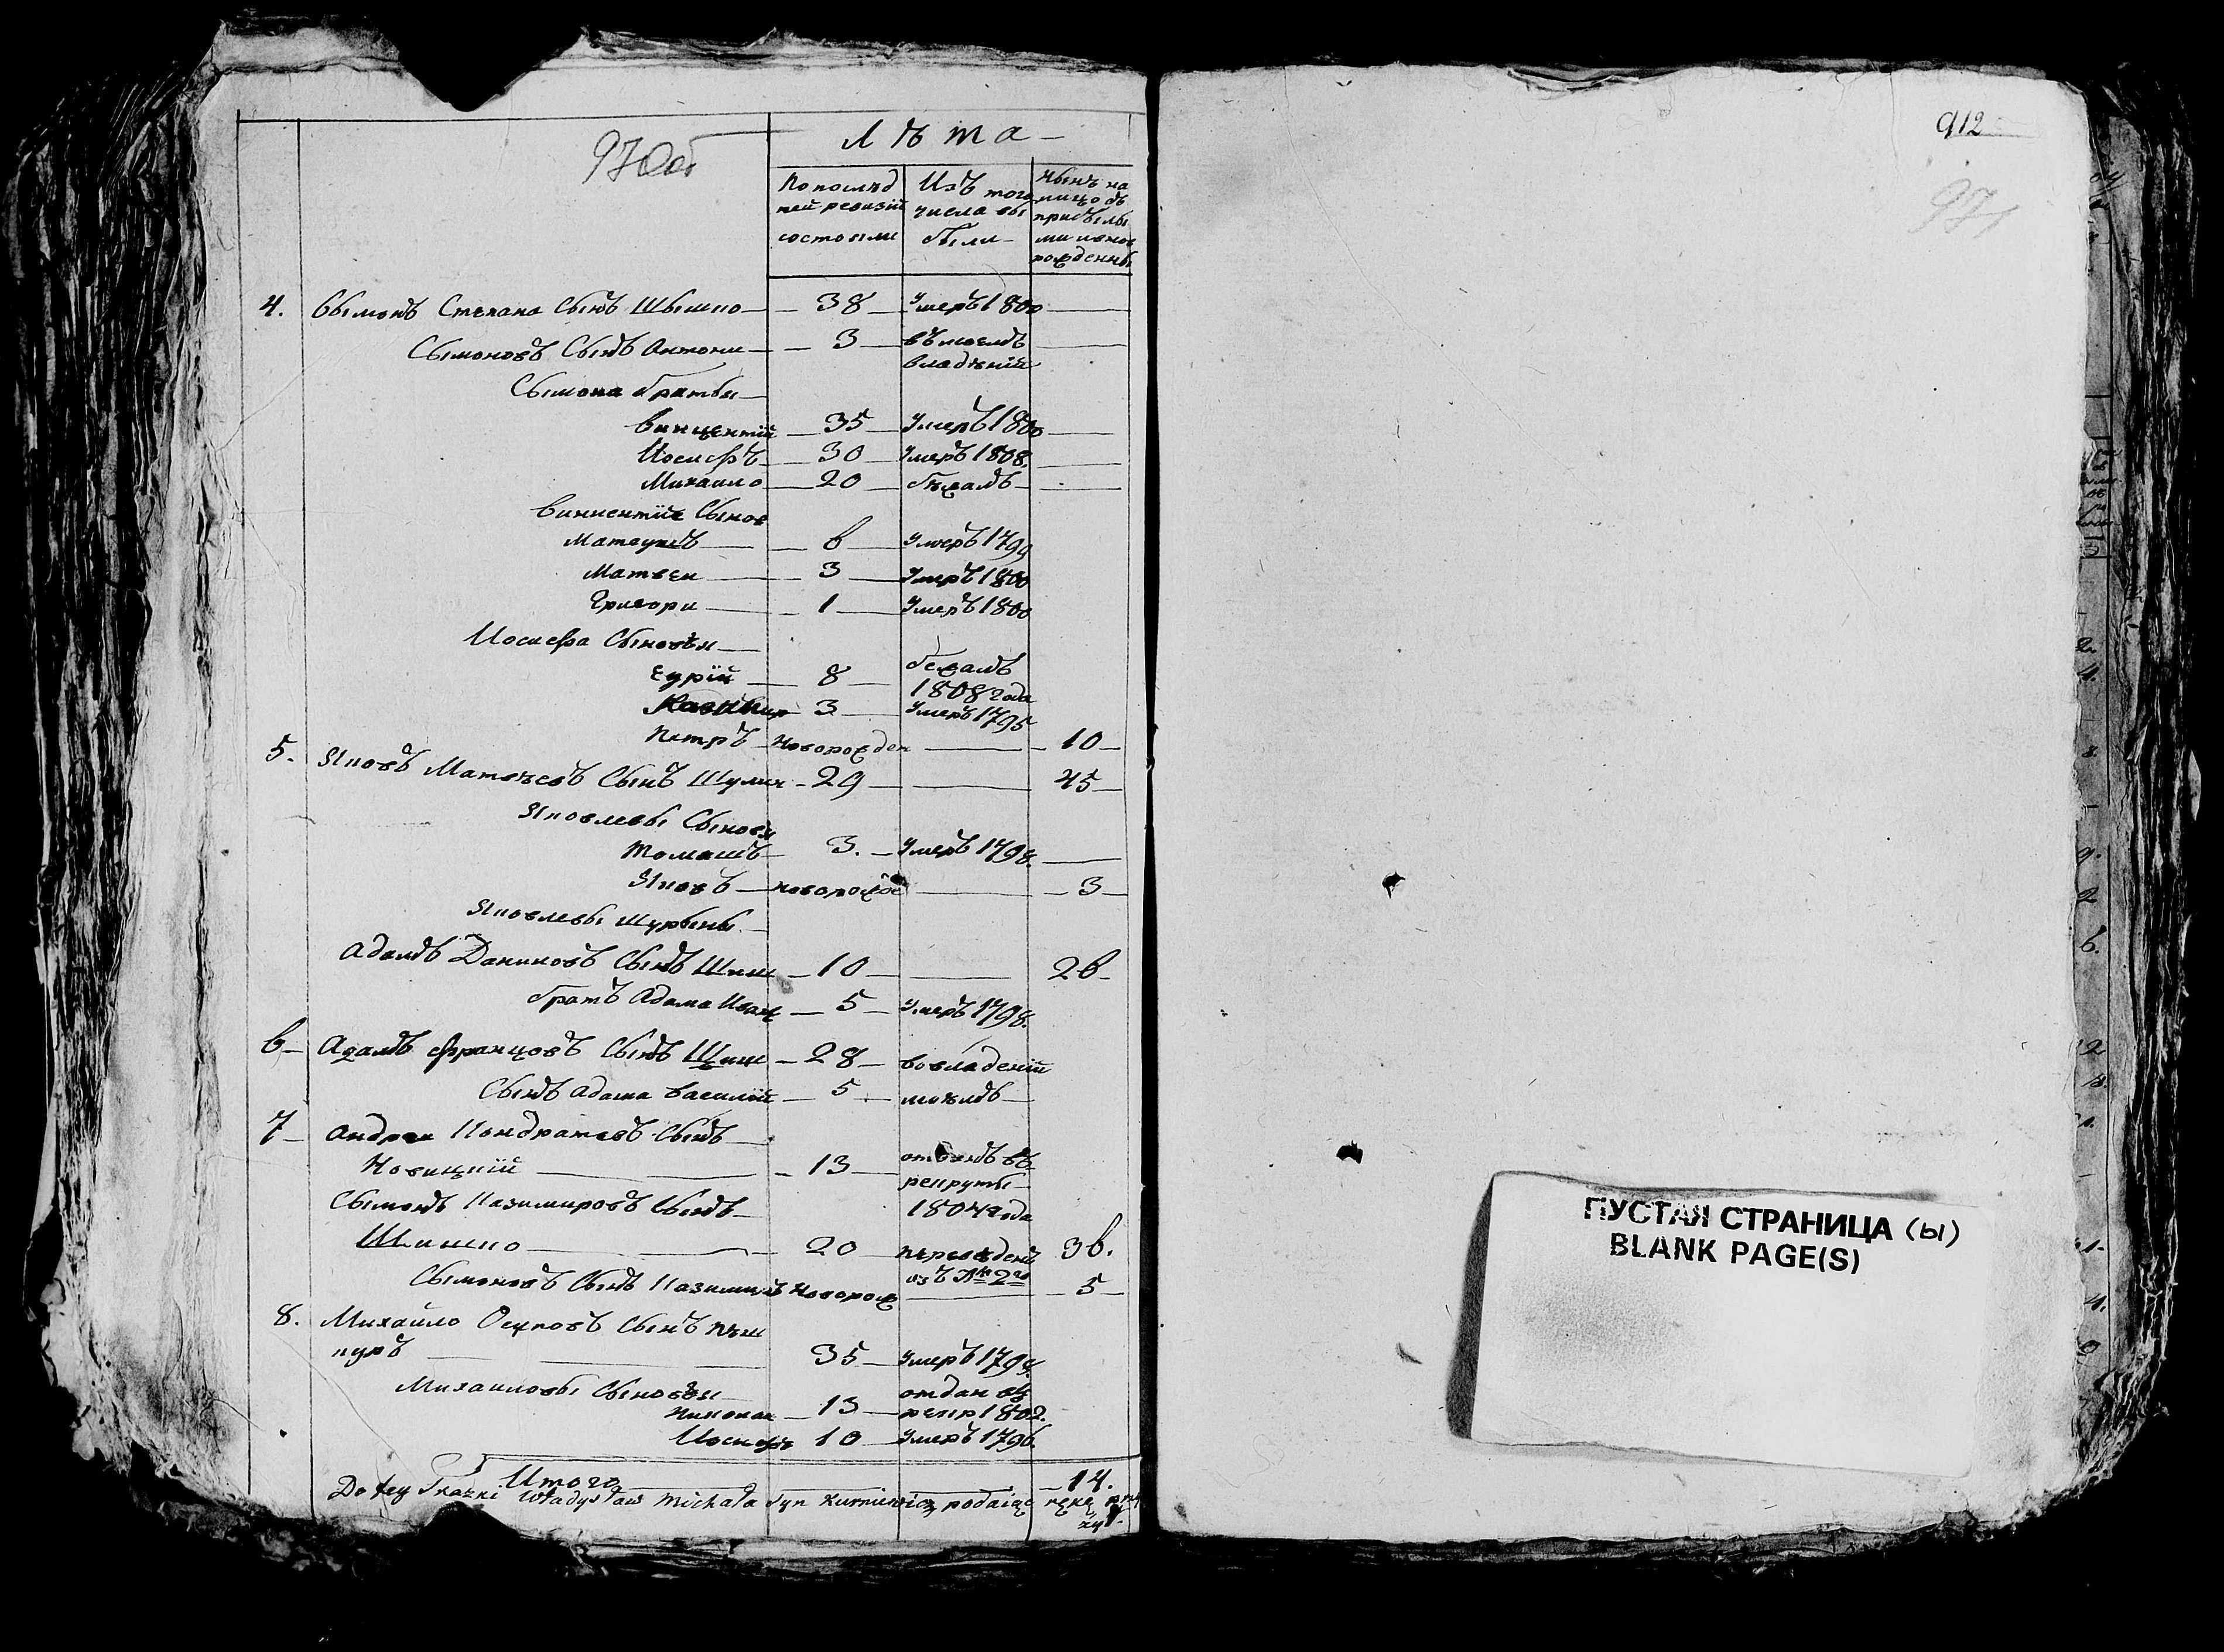 970об
Лѣта
По послѣд
ней ревизіи
состояли
Изъ того
числа вы
были
Нынѣ на
лицо съ
прибылы
ми и внов
рожденны
4. Сымонъ Степана Сынъ Шышко 38 Умеръ 1800
Сымоновъ Сынъ Антони 3 въ моемъ
владѣніи
Сымона братья
Винцентій 35 Умеръ 1800
Иосифъ 30 Умеръ 1808.
Михаило 20 бѣжалъ
Винцентія Сынов
Матеушъ 6 Умеръ 1799
Матвеи 3 Умеръ 1800
Григори 1 Умеръ 1800
Иосифа Сыновья
Еурій 8 бежалъ
1808 года
Казимир 3 Умеръ 1795
Петръ Новорожден 10
5. Яковъ Матвѣевъ Сынъ Шулик 29 45
Яковлевы Сыновя
Томашъ 3. Умеръ 1798.
Яковъ новорожде 3
Яковлевы Шурыны
Адамъ Даниловъ Сынъ Шиш 10 26
братъ Адама Иван 5 Умеръ 1798.
6 Адамъ Францовъ Сынъ Шиш 28 во владеніи
Сынъ Адама Василій 5 моемъ
7 Андреи Кондратовъ Сынъ
Новицкій 13 отданъ въ
рекруты
Сымонъ Казимировъ Сынъ 1804 года
Шишко 20 переведенъ 36.
изъ № 2го
Сымоновъ Сынъ Казимиръ Новорож 5
8. Михаило Осиповъ Сынъ Пѣш
куръ 35 Умеръ 1798.
Михаиловы Сыновья отдан въ
Николаи 13 рекр 1802.
Иосифъ 10 Умеръ 1796.
Итого 14.
Do tey Skazki Władysław Michała Syn Kurniewicz podaiąc rękę przy
912
971
ПУСТАЯ СТРАНИЦА (Ы)
BLANK PAGE(S)